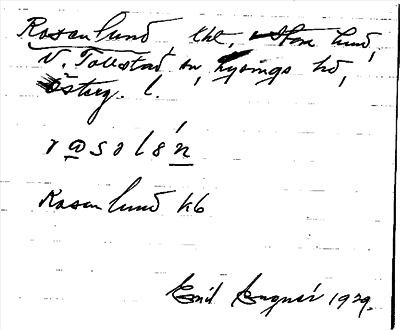 Rosenlund, lht, Stora Lund,
V. Tollstad sn, Lysings hd,
Österg. l.
rɷsolén
Rosenlund kb
Emil 1929.